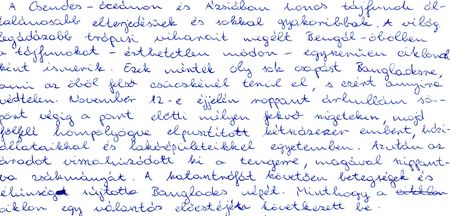 A Csendes-óceánon és Ázsiában honos tájfunok ál-
talánosabb elterjedésűek és sokkal gyakoribbak. A világ
legádázabb trópusi viharait megélt Bengál-öbölben
a tájfunokat - érthetetlen módon - egyszerűen ciklonok-
ként ismerik. Ezek mértek oly sok csapást Bangladesre,
ami az öböl felső csücskénél terül el, s ezért annyira
védtelen. November 12-e éjjelén roppant árhullám sö-
pört végig a part előtti mélyen fekvő szigeteken, majd
fölfelé hömpölyögve elpusztított kétszázezer embert, házi-
állataikkal és lakóépületeikkel egyetemben. Azután az
áradat visszahúzódott ki a tengerre, magával ragadva
zsákmányát. A katasztrófát követően betegségek és
éhínség sújtotta Banglades népét. Minthogy a
ciklon egy választás előestéjén következett be.